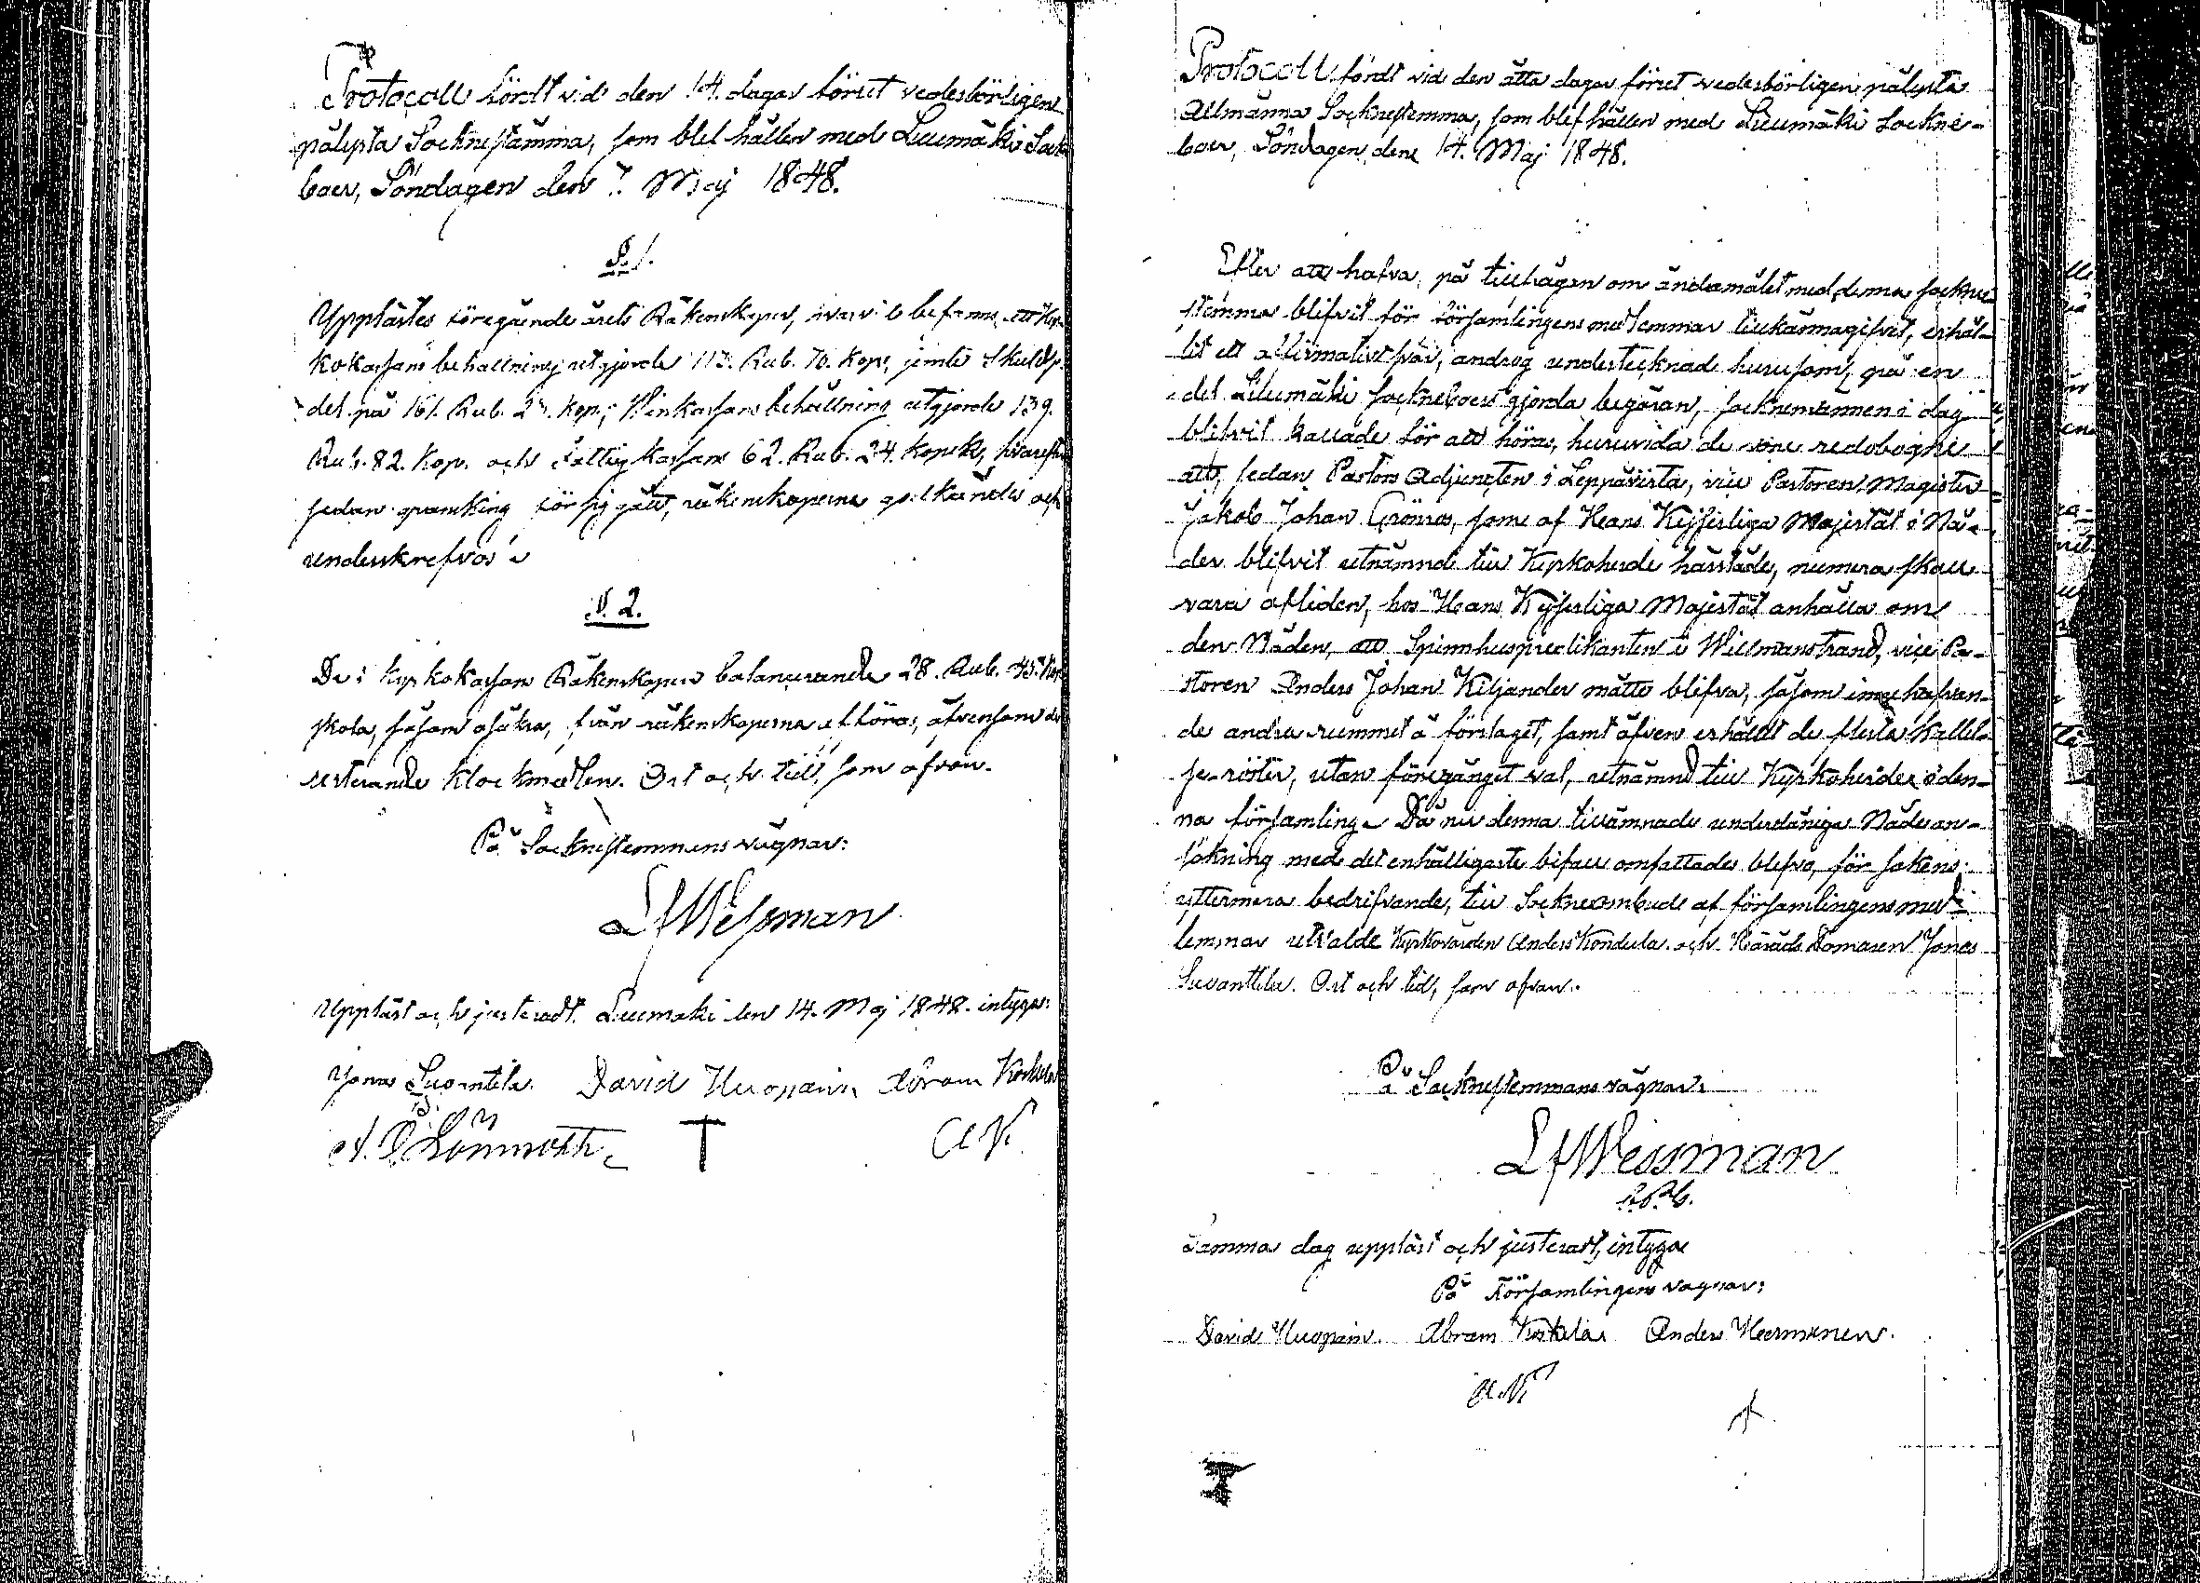 Protocoll fördt vid den 14. dagar förut vedesbörligen
pålysta Socknestämma, som blef hållen med Luumäki Sock
boer, Söndagen den 7. Maj 1848.
§. 1.
Upplästes föregående årets Räkenskaper, hvarvid befanns att Kyr-
kokassans behållning utgjorde 113. Rub. 70. Kop, jemte Skulds.
del på 161. Rub. Kop; Vinkassans behållning utgjorde 139.
Rub. 82. Kop. och Fattigkassans 62. Rub. 24. Kopek, hvareft
sedan granskning försiggått, räkenskaperna godkändes och
underskrefvos.
§. 2.
De i Kyrkokassans Räkenskaper balancerande 28. Rub. 45. Kop
skola, såsom osäkra, från räkenskaperna afföras, äfvensom de
resterande klockmedlen. Ort och tid, som ofvan.
På Socknestemmans vägnar:
LfWessman
Uppläst och justeradt. Luumäki den 14. Maj 1848. intyga:
Jonas Suontila. David Huopain Abram Koskela
A. Lönnroth A.K.
Protocoll fördt vid den åtta dagar förut vedesbörligen pålysta
Allmänna Socknestemma, som blef hållen med Luumäki Sockne-
boer, Söndagen den 14. Maj 1848.
Efter att hafva, på tillfrågan om ändamålet med denna Sockne
stemma blifvit för församlingens medlemmar tillkännagifvet, erhål-
lit ett affirmativt svar, androg undertecknade hurusom, på en
del Luumäki Socknebors gjorda begäran, Socknemännen i dag
blifvit kallade för att höras, huruvida de vore redobogne
att, sedan Pastors Adjuncten i Leppävirta, vice Pastoren, Magister
Jakob Johan Grönroos, som af Hans Kejserliga Majestät i Nå-
der blifvit utnämnd till Kyrkoherde härstädes, numera skall
vara afliden, hos Hans Kejserliga Majestät anhålla om
den Nåden, att Spinnhuspredikanten i Willmanstrand, vice Pa-
storen Anders Johan Kiljander måtte blifva, såsom innehafvan-
de andra rummet å förslaget, samt äfven erhållit de flesta Kallel-
se-röster, utan föregånget val, utnämnd till Kyrkoherde i den-
na församling. Då nu denna tillämnade underdåniga Nådean-
sökning med det enhälligaste bifall omfattades blefvo, för sakens
yttermera bedrifvande, till Sockneombud af församlingens med-
lemmar utvalde Kyrkovärden Anders Kondula och Härads Domaren Jonas
Suontila. Ort och tid, som ofvan.
På Socknestemmans vägnar:
LfWessman
Samma dag uppläst och justeradt, intyga
På Församlingens vägnar:
David Huopain. Abram Koskela Anders Heermanen.
A.K.